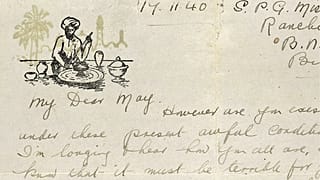 17.11.40 - S.P.G. Mis
Ranch
B.N.
My Dear May.
However are you
under these present awful condi
I'm longing to hear how you all are,
know that it must be terrible for